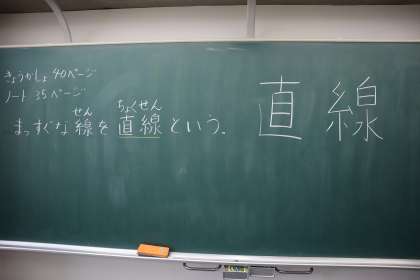 きょうかしょ 40ページ
ノート 35ページ
せん ちょくせん
まっすぐな 線を 直線 という.
直線